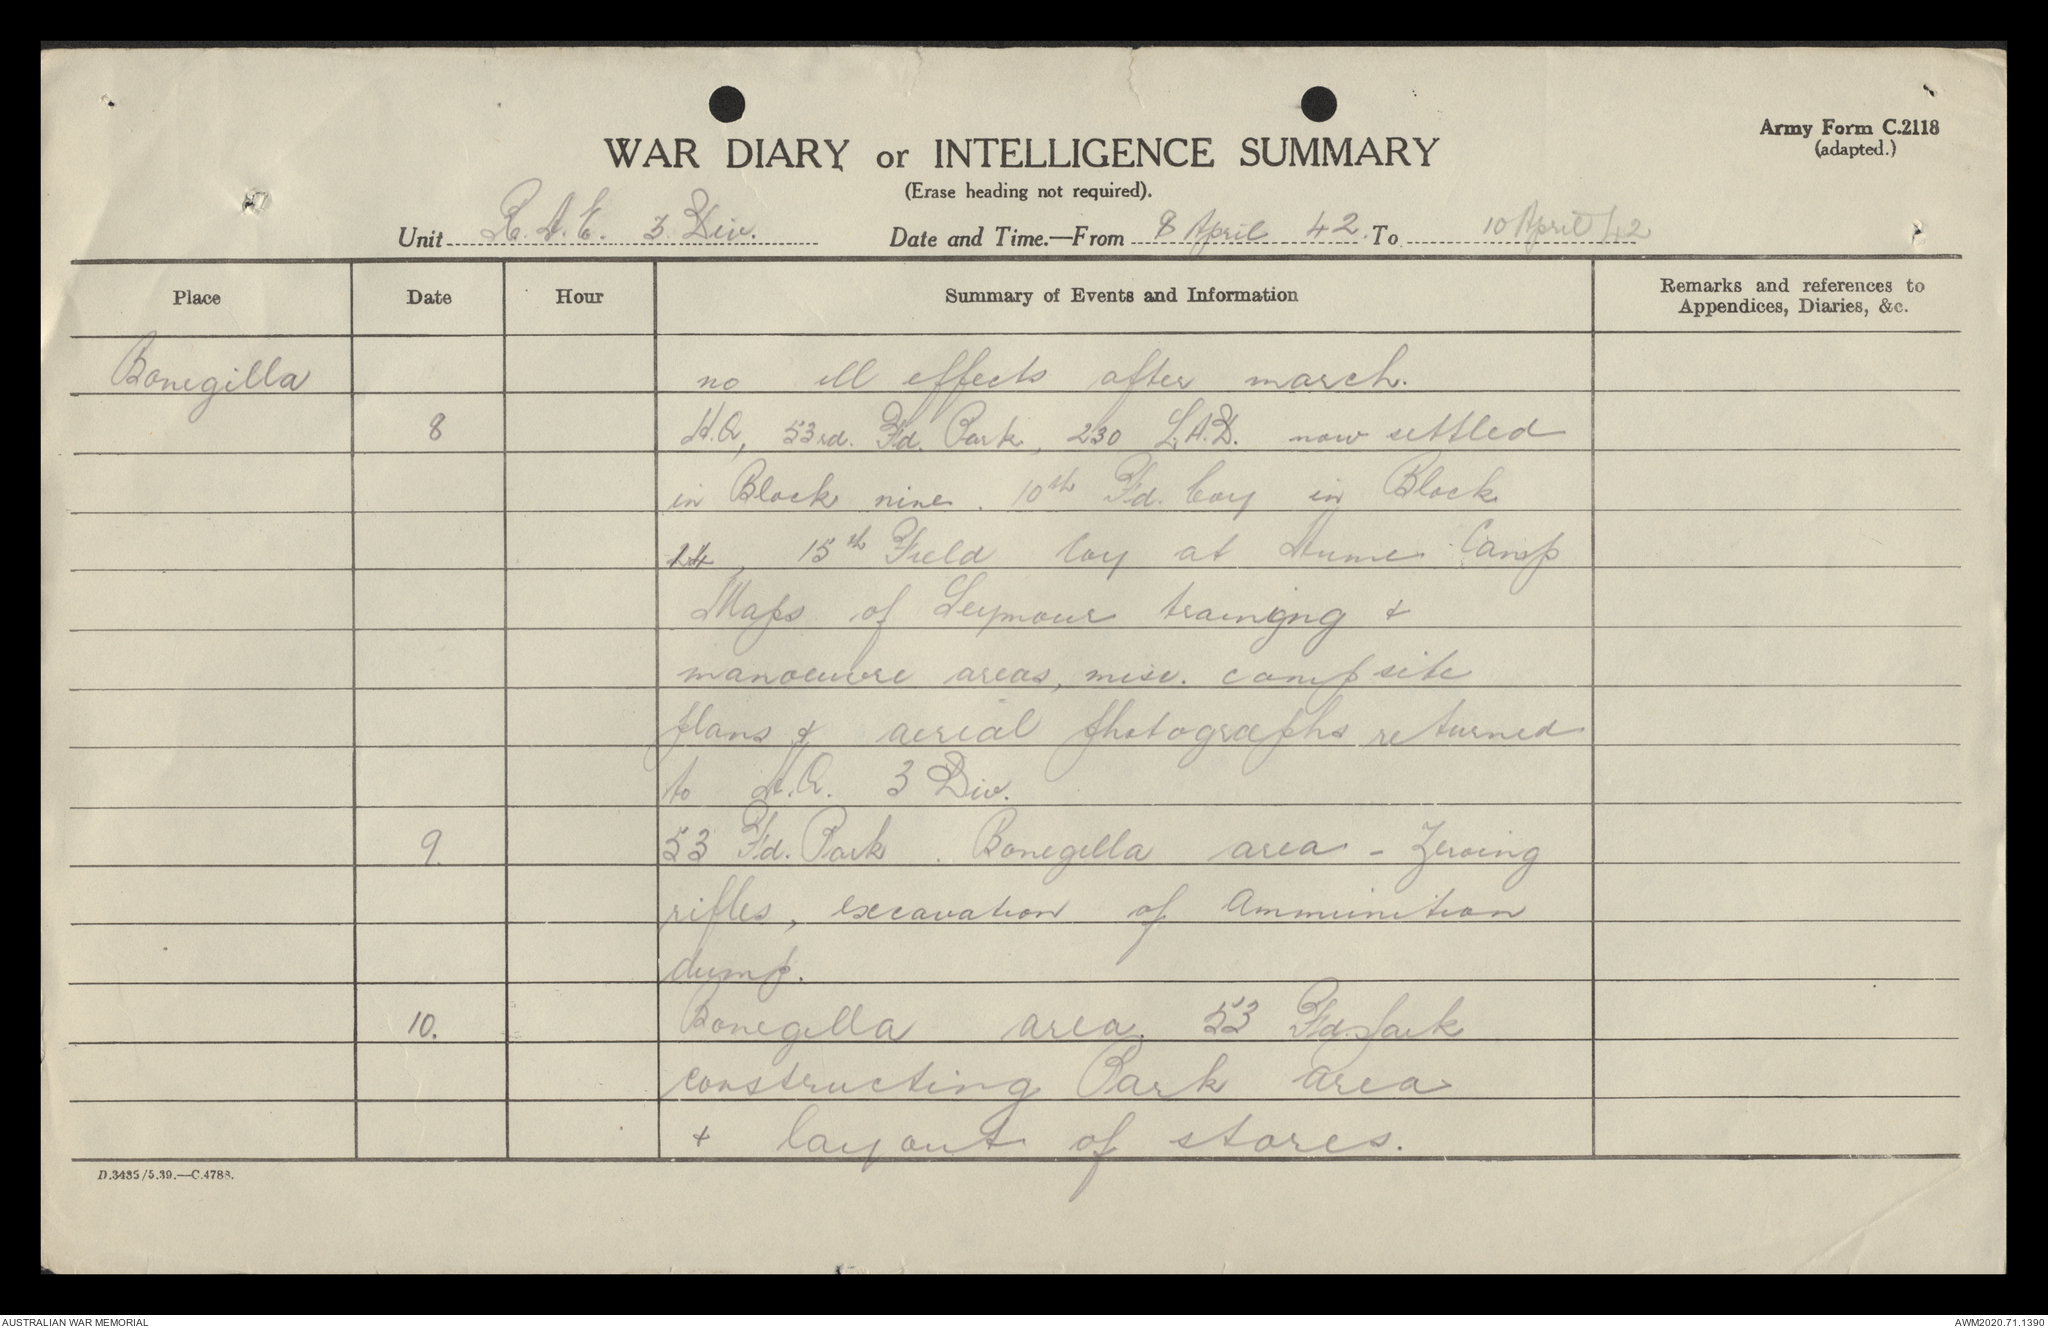 Army Form C.2118
(adapted.)
WAR DIARY or INTELLIGENCE SUMMARY
(Erase heading not required).
Unit R.A.E. 3. Div. Date and Time.—From 8 April 42. To 10 April 42
Place Date Hour Summary of Events and Information Remarks and references to
Appendices, Diaries, &c.
Bonegilla no ill effects after march.
8 H.Q, 53rd. Fd. Park, 230 L.A.D. now settled
in Block nine. 10th Fd. Coy in Block
24, 15th Field Coy at Hume Camp
Maps of Seymour trainging &
manoeuvre areas, misc. camp site
plans & aerial photographs returned
to H.Q. 3 Div.
9. 53 Fd. Park. Bonegilla area - Zeroing
rifles, excavation of Ammunition
dump.
10. Bonegilla area. 53 Fd. Park
constructing Park area
& layout of stores.
D.3435/5.39.—C.4788.
AUSTRALIAN WAR MEMORIAL AWM2020.71.1390